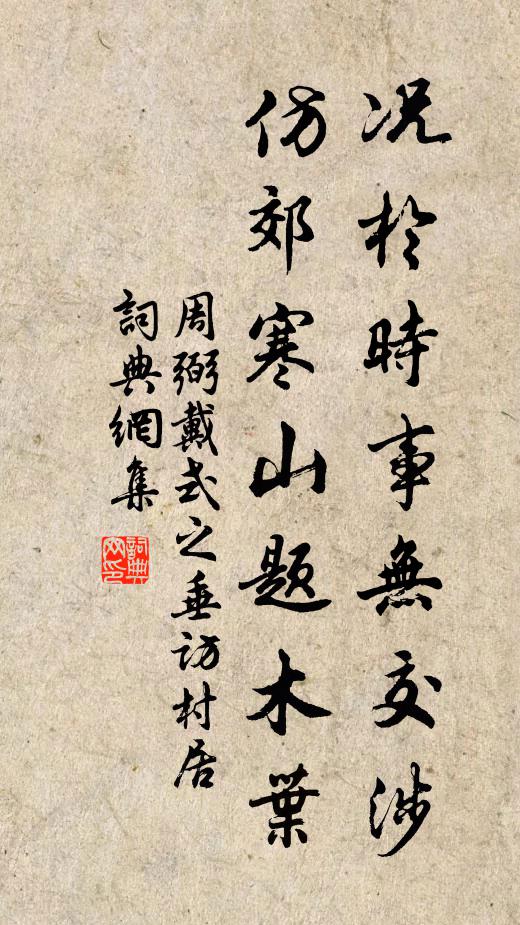 况於時事無交涉
仿郊寒山題木葉
周弼戴式之垂訪村居
詞典網集
詞典网印